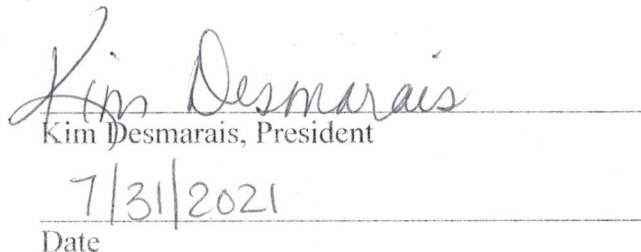 Kim Desmarais
Kim Desmarais, President
7/31/2021
Date